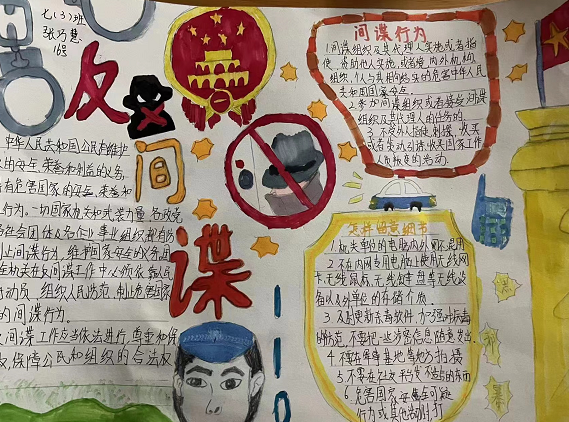 七(3)班
张乃慧
16号
反
间
谍
中华人民共和国公民有维护
安全、荣誉和利益的义务,
有危害国家的安全、荣誉和
行为。一切国家机关和武装力量、各政党
社会团体及各企业事业组织都有防
制止间谍行为,维护国家安全的义务
在机关在反间谍工作中必须依靠人民
动员、组织人民防范、制止危害国家
的间谍行为。
间谍工作应当依法进行,尊重和保
权,保障公民和组织的合法权
间谍行为
1.间谍组织及其代理人实施或者指
使、资助他人实施,或者境内外机构
组织、个人与其相勾结实施危害中华人民
共和国国家安全.
2.参加间谍组织或者接受间谍
组织及其代理人的任务的.
3.
人员叛变的活动.
怎样留意细节
1.机关单位的电脑内外网不混用
2.不在内网专用电脑上使用无线网
卡、无线鼠标、无线键盘等无线设
备以及外单位的存储介质
3.及时更新杀毒软件,加强对病毒
的防范,不要把一些涉密信息随意发出
4.不要在军事基地等地方拍摄
5.不要在社交平台发不当的东西
6.危害国家安全可疑
行为或其他
110